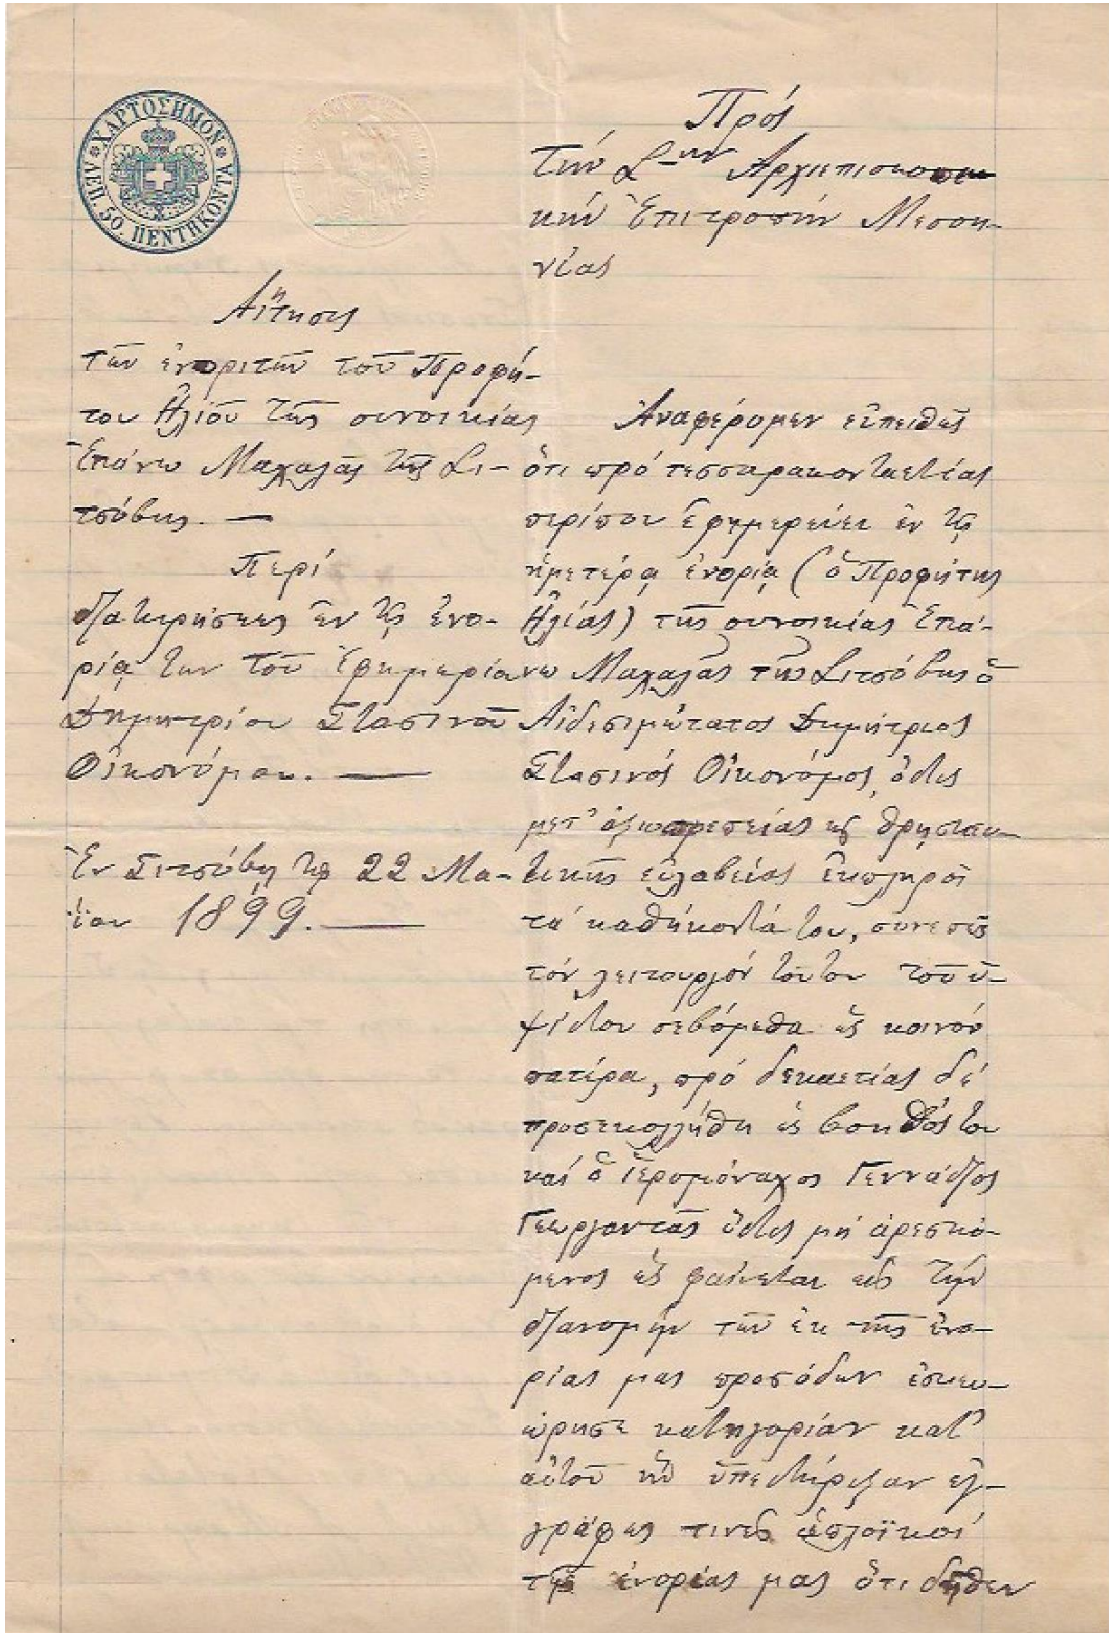 ΧΑΡΤΟΣΗΜΟΝ
ΛΕΠ. 50. ΠΕΝΤΗΚΟΝΤΑ
Πρός
τήν Σ-την Αρχιεπισκοπι
κήν Ἐπιτροπήν Μεσση-
νίας
Αἴτησις
τῶν ἐνοριτῶν τοῦ Προφή-
του Ἠλιοῦ τῆς συνοικίας
Ἐπάνω Μαχαλᾶς τῆς Σι-
τσόβης. —
Περί
διατηρήσεως ἐν τῇ ἐνο-
ρίᾳ των τοῦ Ἐφημερίου
Δημητρίου Στασινοῦ
Οἰκονόμου. —
Ἐν Σιτσόβῃ τῇ 22 Μα-
ΐου 1899. —
Ἀναφέρομεν εὐπειθῶς
ὅτι πρό τεσσαρακονταετίας
περίπου ἐφημερεύει ἐν τῇ
ἡμετέρᾳ ἐνορίᾳ (ὁ Προφήτης
Ἠλίας) τῆς συνοικίας Ἐπά-
νω Μαχαλᾶς τῆς Σιτσόβης ὁ
Αἰδεσιμώτατος Δημήτριος
Στασινός Οἰκονόμος, ὅστις
μετ' ἀξιοπρεπείας κ θρησκευ-
τικῆς εὐλαβείας ἐκπληροῖ
τά καθήκοντά του, συνεπῶς
τόν λειτουργόν τοῦτον τοῦ ὑ-
ψίστου σεβόμεθα ὡς κοινόν
πατέρα, πρό δεκαετίας δέ
προσεκολλήθη ὡς βοηθός του
καί ὁ Ἱερομόναχος Γεννάδιος
Γεωργαντᾶς ὅστις μή ἀρεσκό-
μενος ὡς φαίνεται εἰς τήν
διανομήν τῶν ἐκ τῆς ἐνο-
ρίας μας προσόδων ἐσκευ-
ώρησε κατηγορίαν κατ'
αὐτοῦ ἥν ὑπεστήριξαν ἐγ-
γράφως τινές ἁπλοϊκοί
τῆς ἐνορίας μας ὅτι δῆθεν